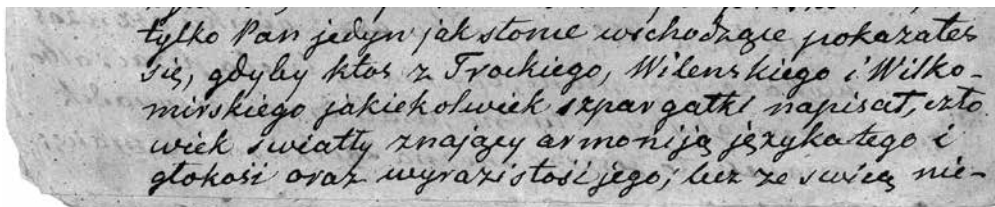 tylko Pan jedyn jak słonie wschodzące pokazałes
się, gdyby ktos z Trockiego, Wilenskiego i Wilko-
mirskiego jakiekolwiek szpargałki napisał, czło
wiek swiatły znający armoniją języka tego i
głokosi oraz wyrazistosi jego; lecz ze swicą nie-